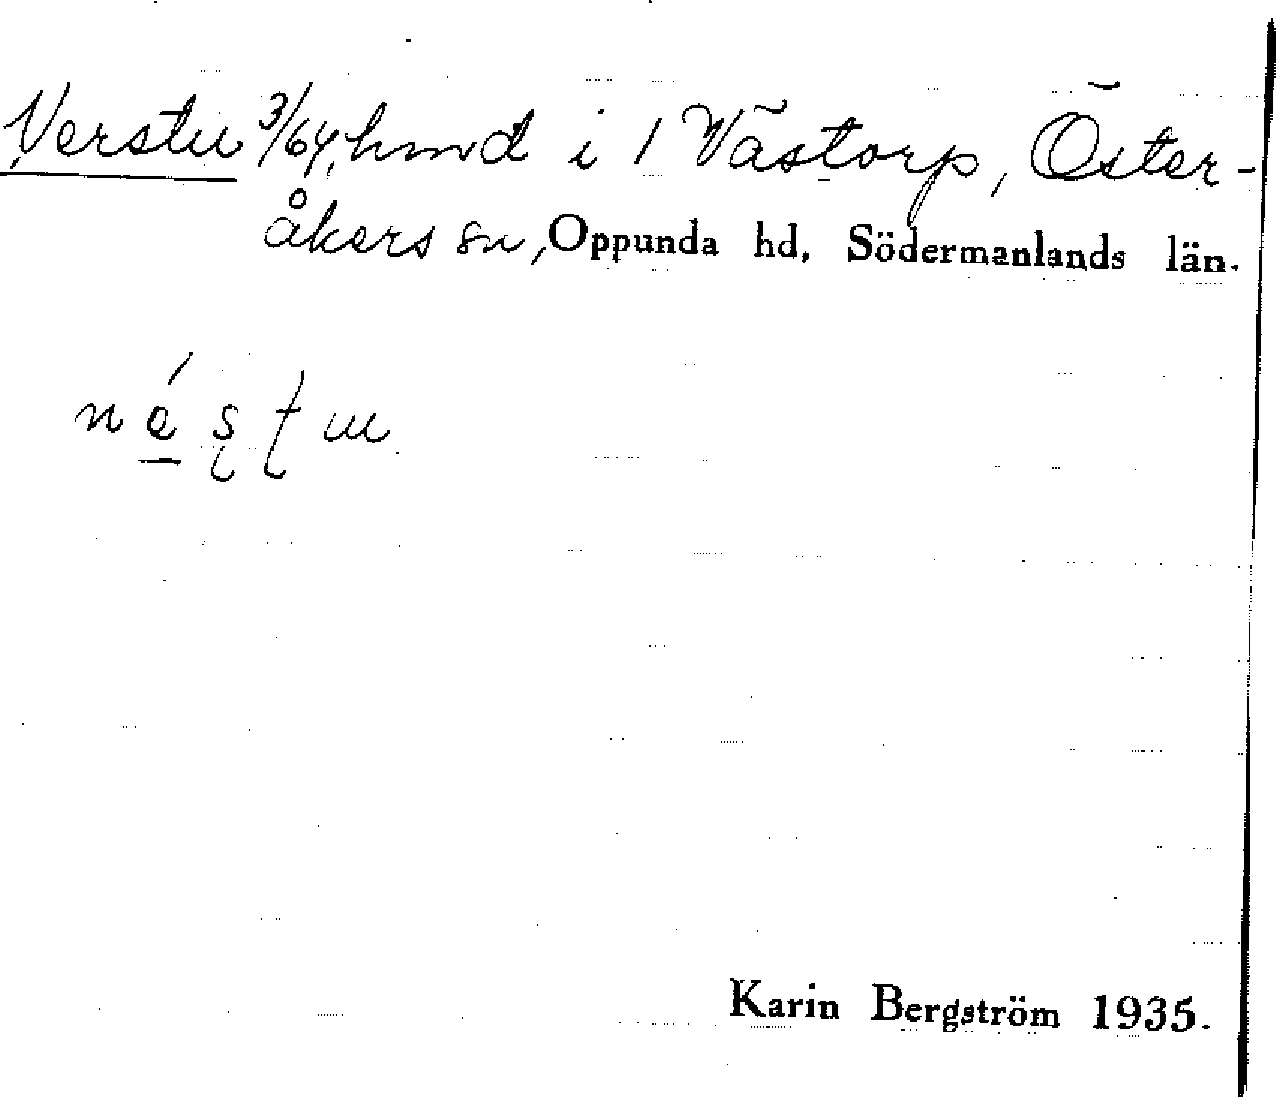 Verstu 3/64, hmd i 1 Västorp, Öster-
åkers sn, Oppunda hd, Södermanlands län.
Karin Bergström 1935.